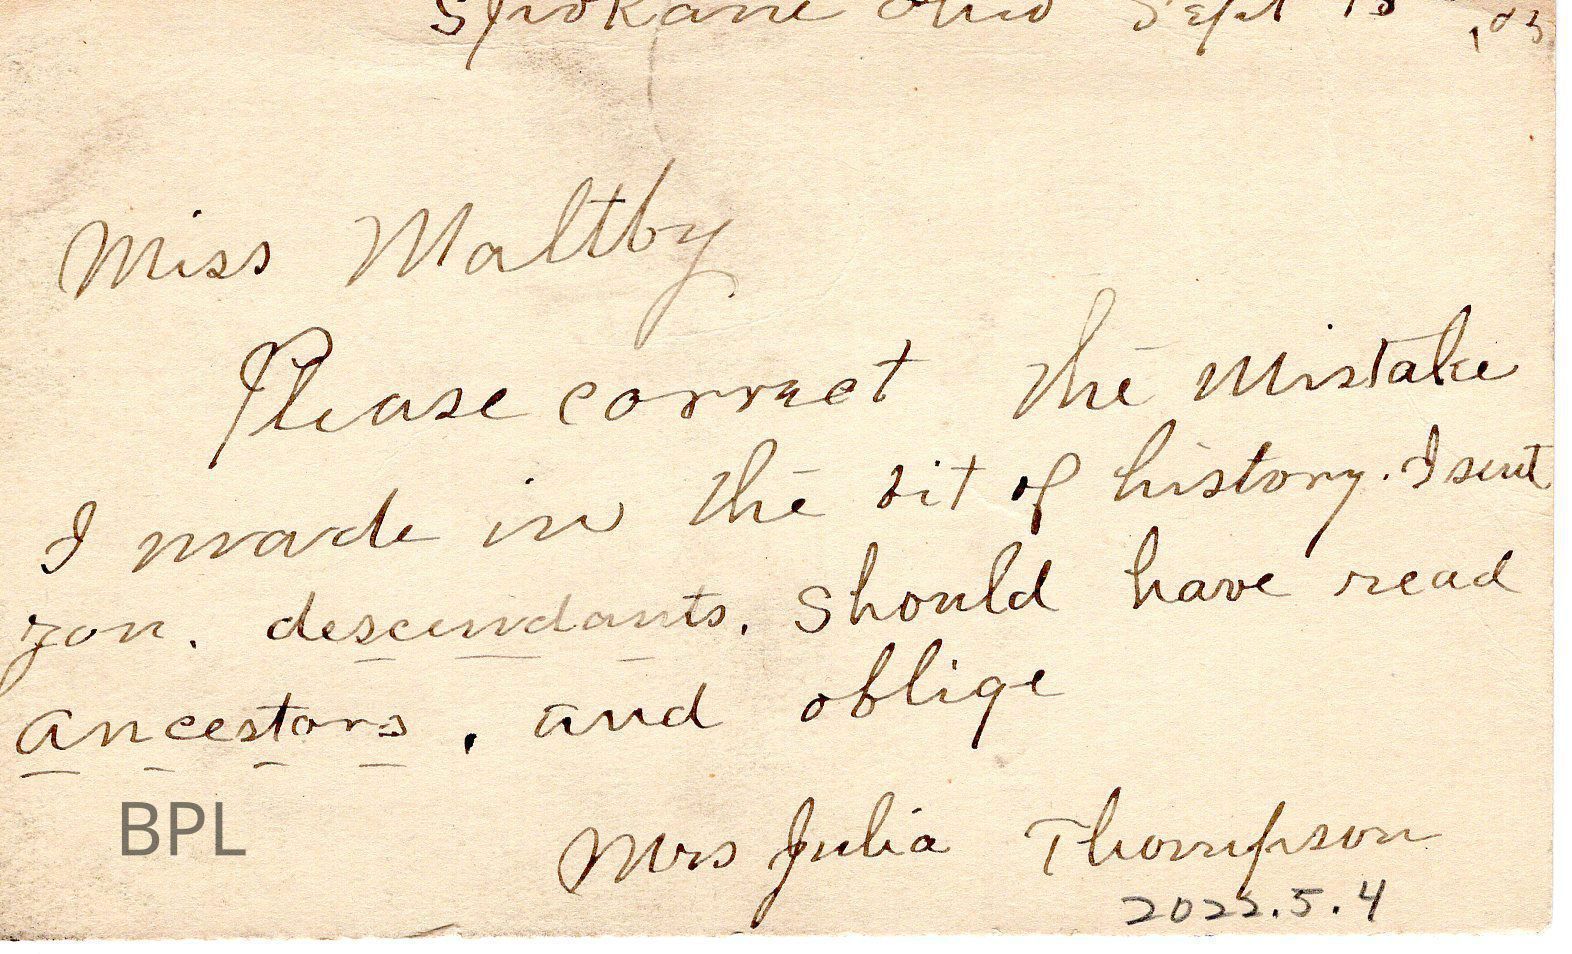 Spokane Ohio Sept 13 '03
Miss Maltby
Please correct the mistake
I made in the bit of history. I sent
you. descendants. Should have read
ancestors, and oblige
Mrs Julia Thompson
2022.5.4
BPL